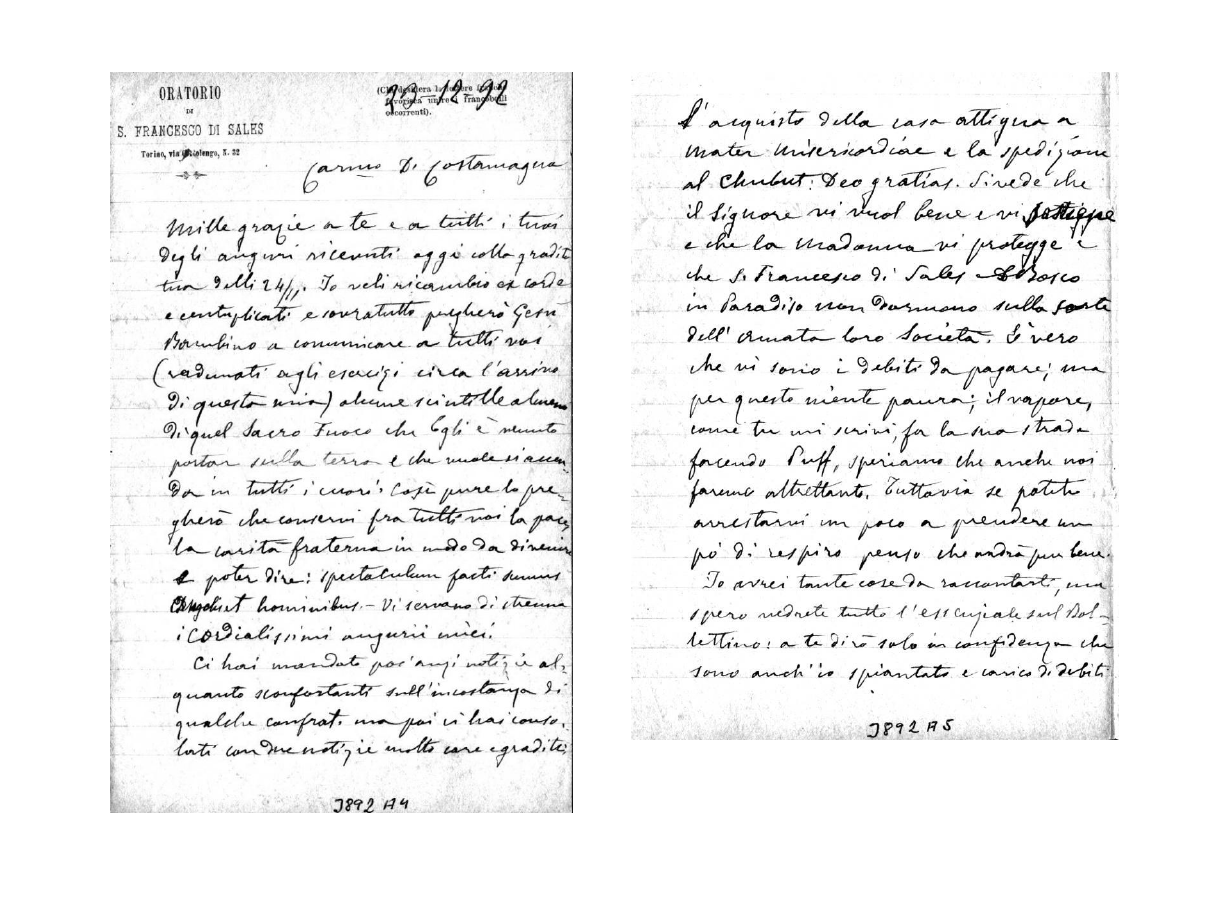 ORATORIO
DI
S. FRANCESCO DI SALES
Torino, via Cottolengo, N. 32
(Chi desidera
favorisca unire i francobolli
occorrenti).
23-12-92
Carmo D. Costamagna
Mille grazie a te e a tutti i tuoi
degli auguri ricevuti oggi colla gradita
tua delli 24/11. Io veli ricambio ex corde
e centuplicati e sovratutto pregherò Gesù
Bambino a comunicare a tutti voi
(radunati agli esercizi circa l'arrivo
di questa mia) alcune scintille almeno
di quel Sacro Fuoco che Egli è venuto
portar sulla terra e che vuole si accen-
da in tutti i cuori. Così pure lo pre-
gherò che conservi fra tutti voi la pace,
la carità fraterna in modo da divenire
e poter dire: spectaculum facti sumus
Angelis et hominibus. - Vi servano di strenna
i cordialissimi augurii miei.
Ci hai mandato poc'anzi notizie al-
quanto sconfortanti sull'incostanza di
qualche confrat. ma poi ci hai conso-
lati con due notizie molto care e gradite,
J892 A4
l'acquisto della casa attigua a
Mater Misericordiae e la spedizione
al Chubut: Deo gratias. Si vede che
il Signore vi vuol bene e vi
e che la Madonna vi protegge e
che S. Francesco di Sales e D. Bosco
in Paradiso non dormono sulla sorte
dell' ornata loro Società. È vero
che vi sono i debiti da pagare; ma
per questo niente paura; il vapore,
come tu mi scrivi, fa la sua strada
facendo Puff, speriamo che anche noi
faremo altrettanto. Tuttavia se potete
arrestarvi un poco a prendere un
pò di respiro penso che andrà pur bene.
Io avrei tante cose da raccontarti, ma
spero vedrete tutto l'essenziale sul Bol-
lettino: a te dirò solo in confidenza che
sono anch'io spiantato e carico di debiti
J892 A5